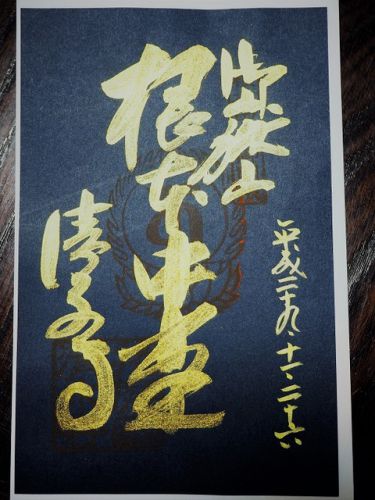 平成二十九・十一・二十六
御嶽山
根本中堂
清水寺